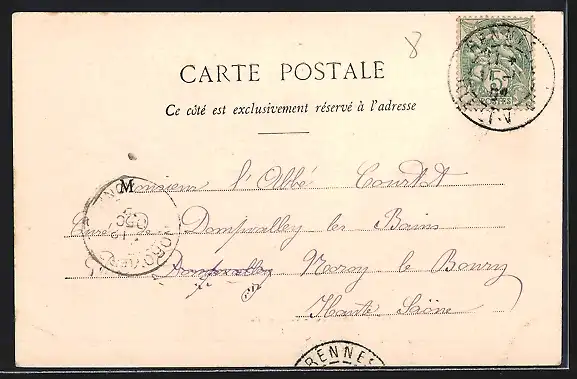 8
RENNES
5
CARTE POSTALE
Ce côté est exclusivement réservé à l'adresse
Monsieur l'Abbé Courtot
Curé de Dampvalley les Bains
Dampvalley Noroy le Bourg
Haute Saône
RENNES